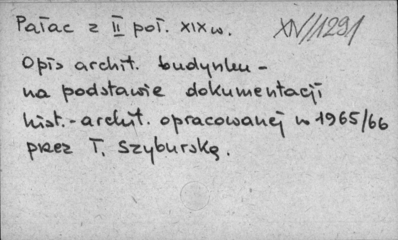 Pałac z II poł. XIX w. XIV/1291
Opis archit. budynku -
na podstawie dokumentacji
hist.-archit. opracowanej w 1965/66
przez T. Szyburską.